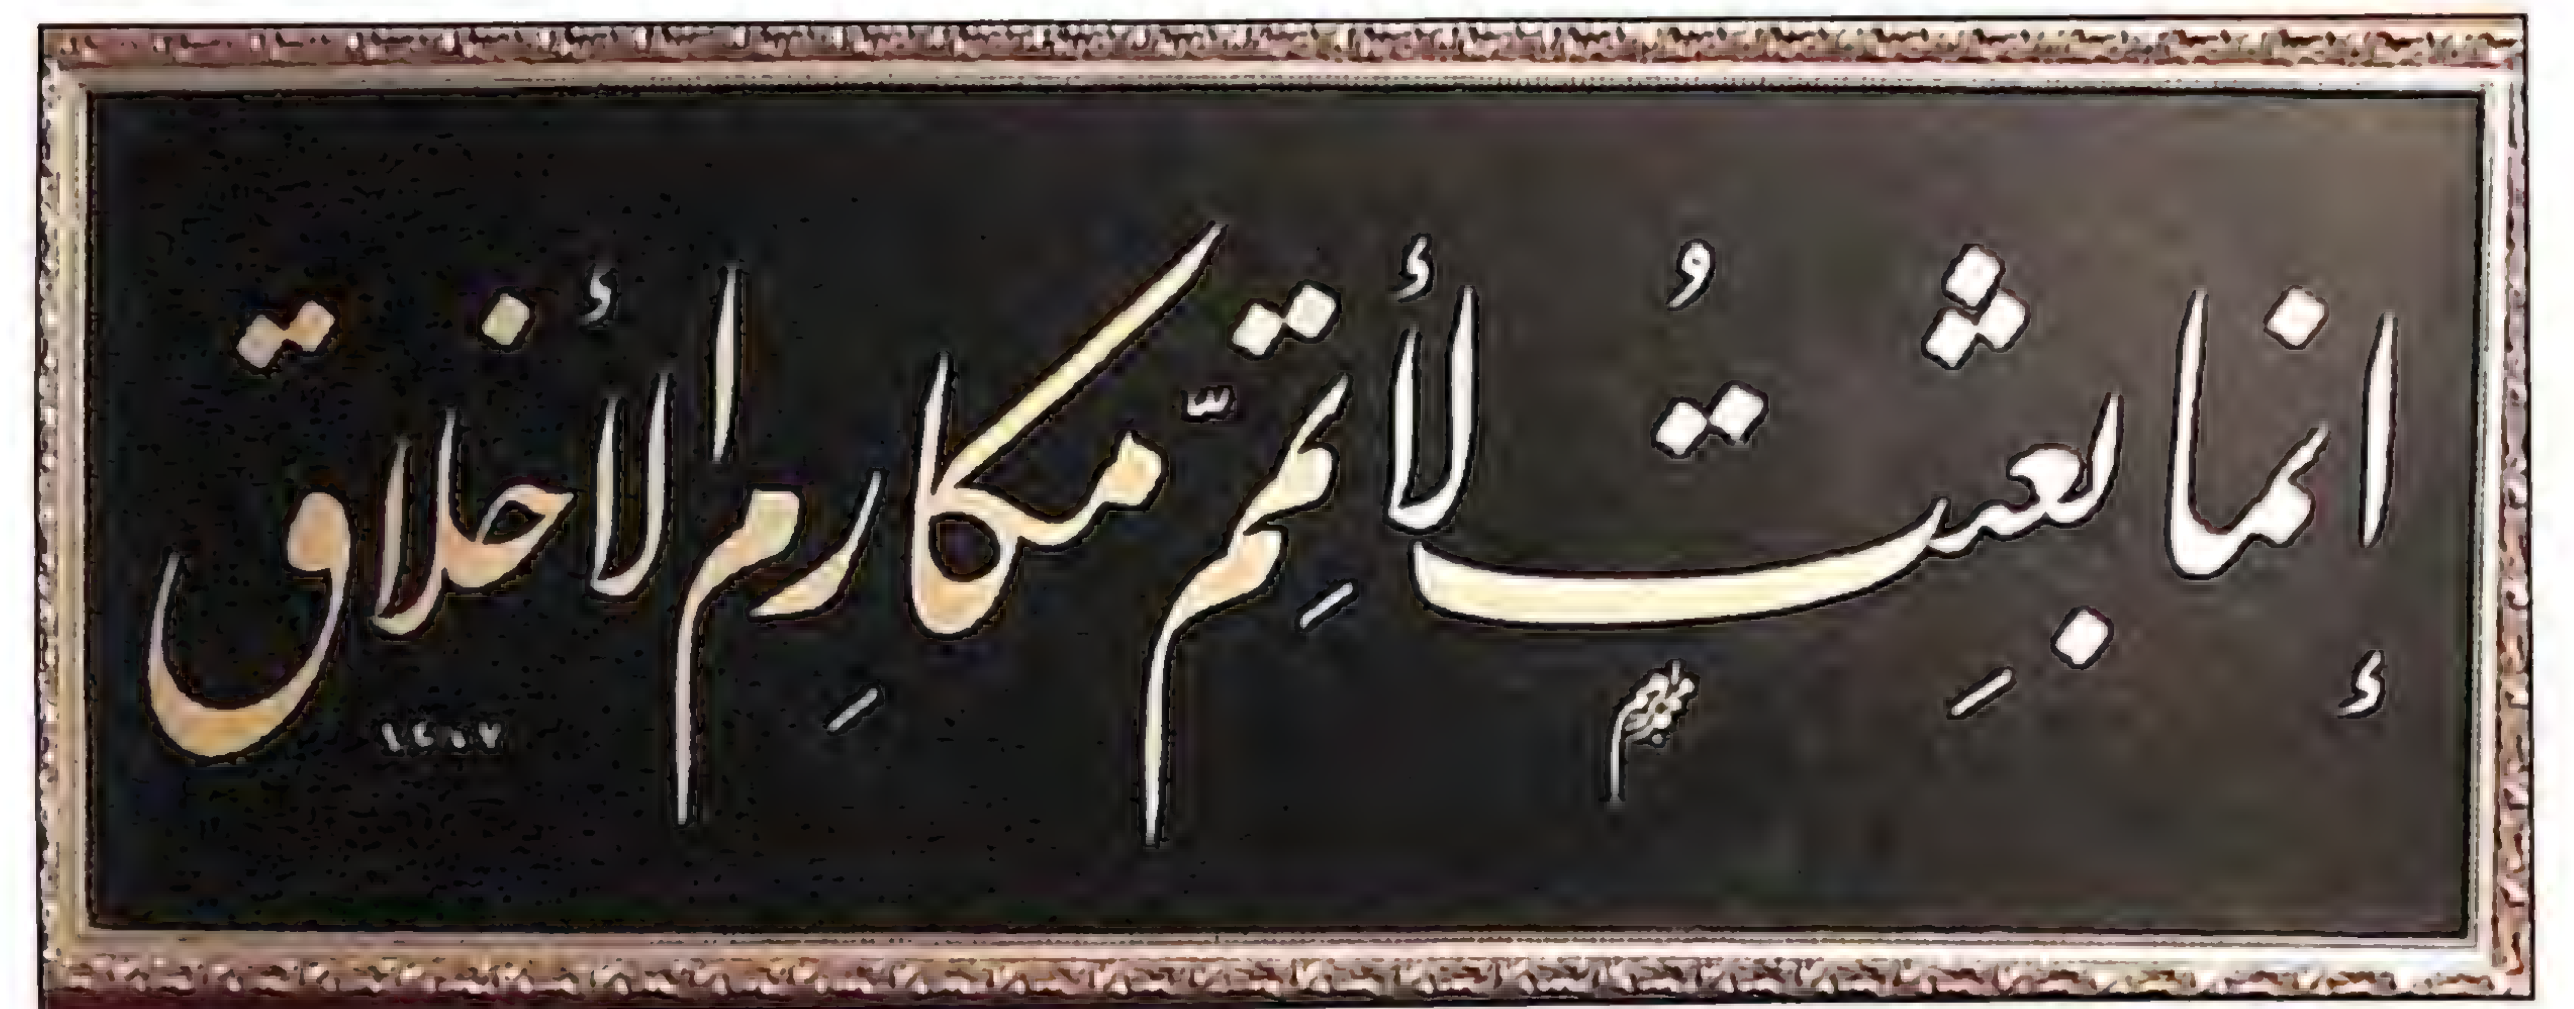 إنما بعِثتُ لأتِمّ مكارِم الأخلاق